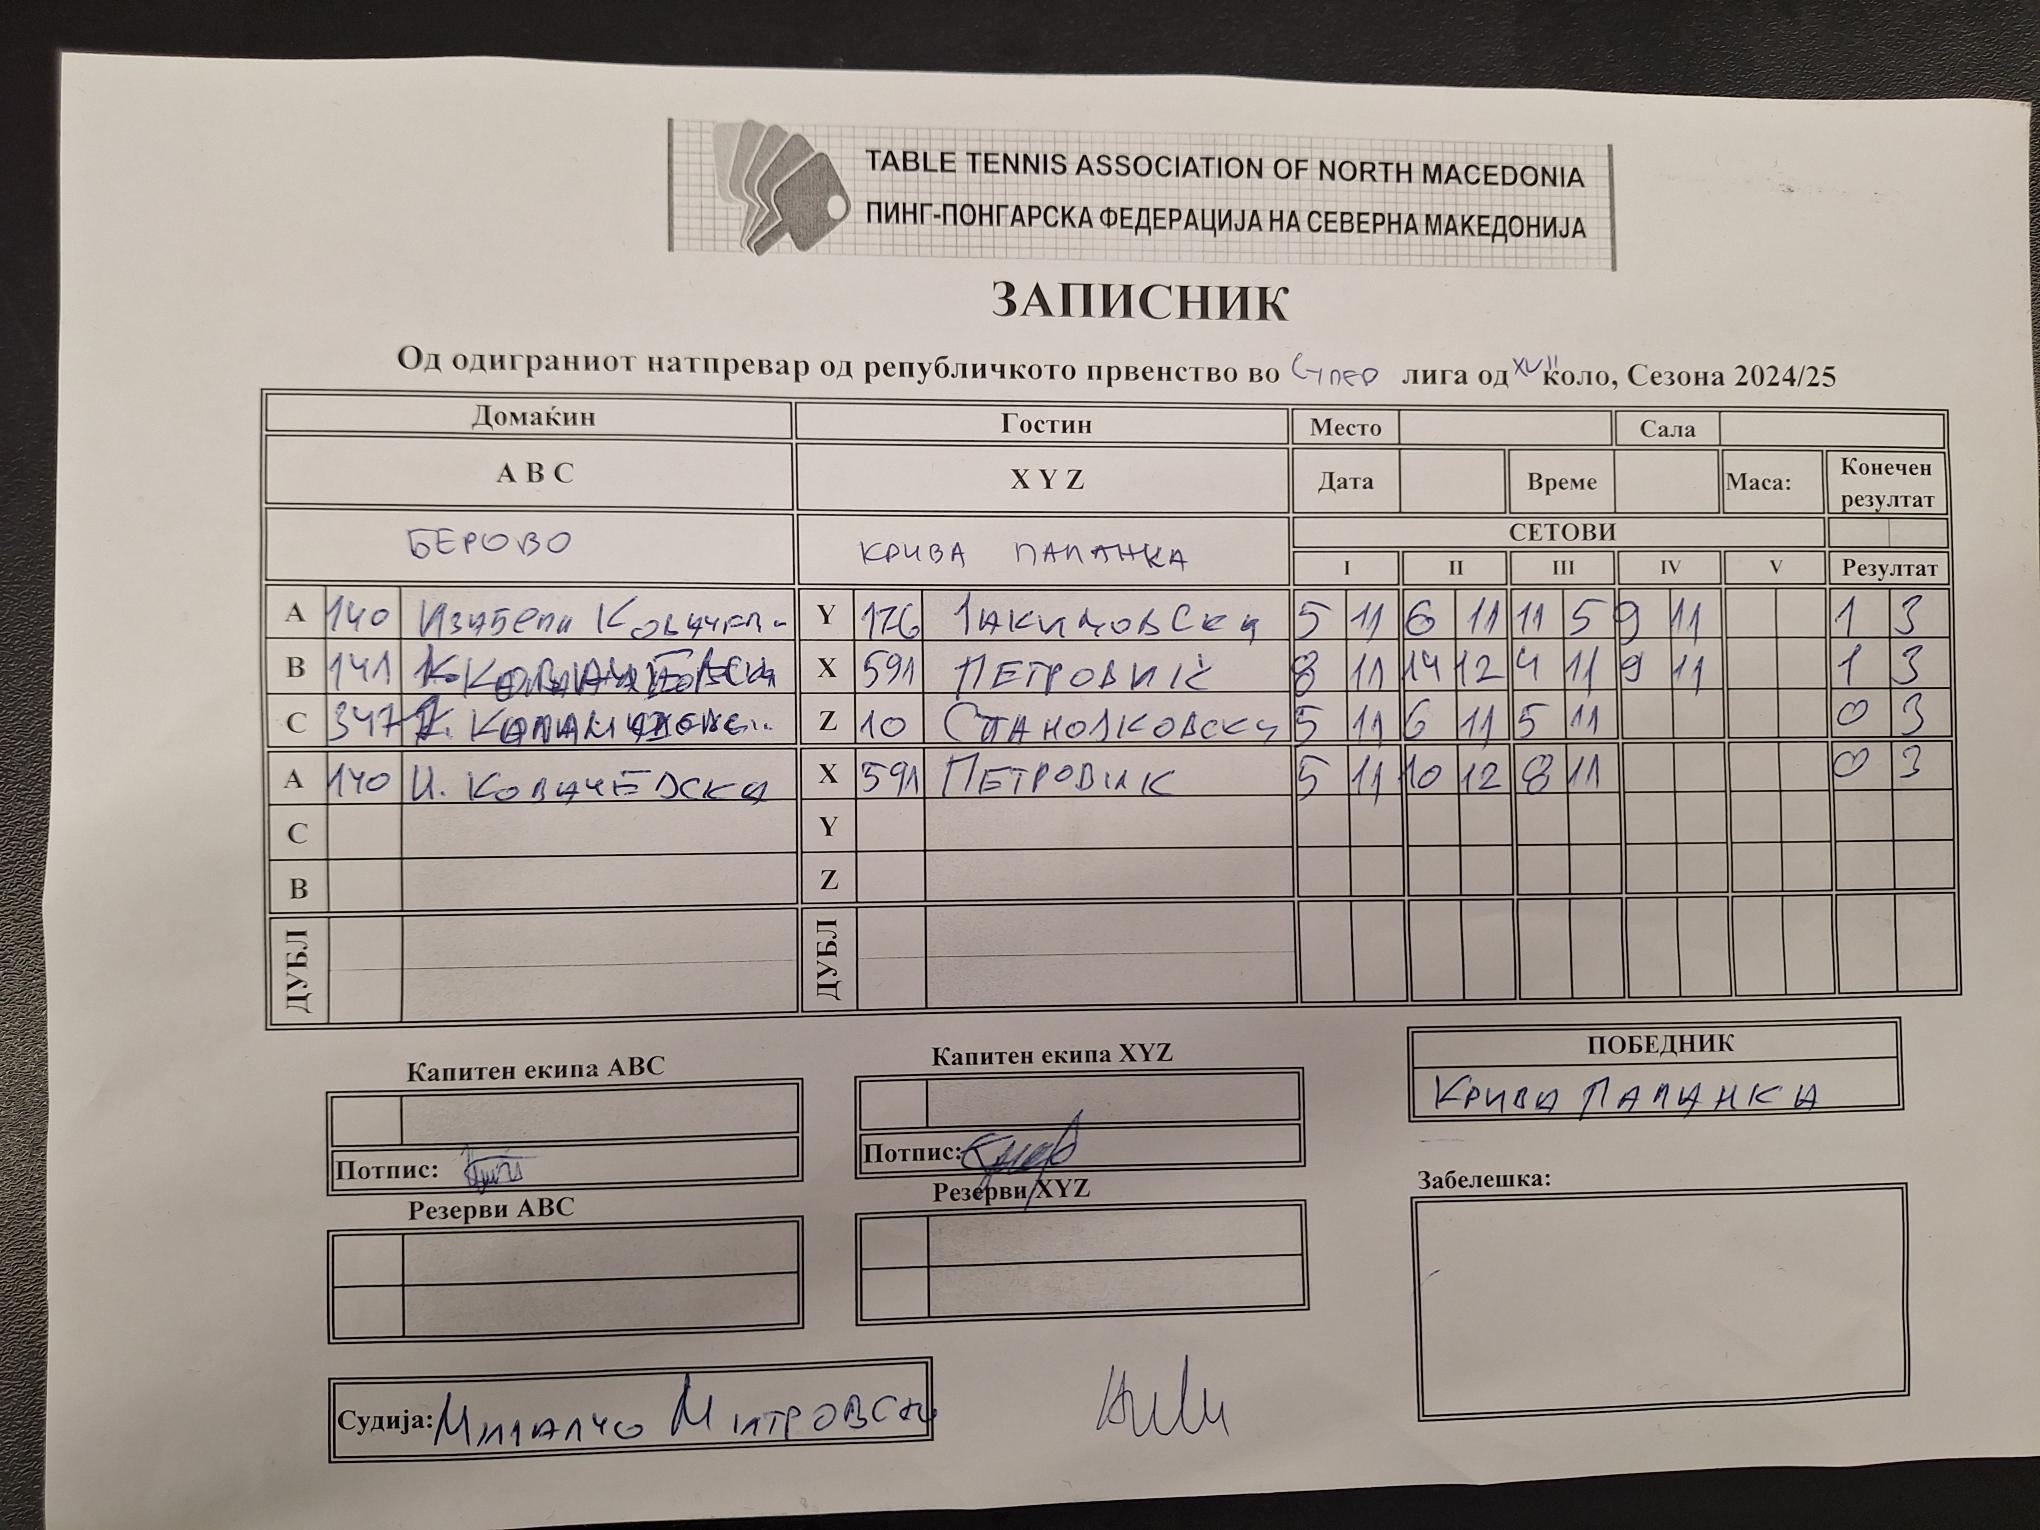 TABLE TENNIS ASSOCIATION OF NORTH MACEDONIA
ПИНГ-ПОНГАРСКА ФЕДЕРАЦИЈА НА СЕВЕРНА МАКЕДОНИЈА
ЗАПИСНИК
Од одиграниот натпревар од републичкото првенство во СУПЕР лига од XVII коло, Сезона 2024/25
Домаќин Гостин Место Сала
A B C X Y Z Дата Време Маса: Конечен резултат
БЕРОВО КРИВА ПАЛАНКА СЕТОВИ
I II III IV V Резултат
A 140 Y 176 5 11 6 11 11 5 9 11 1 3
B 141 X 591 ПЕТРОВИЌ 8 11 14 12 4 11 9 11 1 3
C 347 Z 10 5 11 6 11 5 11 0 3
A 140 И. КОВАЧЕВСКА X 591 ПЕТРОВИК 5 11 10 12 8 11 0 3
C Y
B Z
ДУБЛ ДУБЛ
Капитен екипа ABC Капитен екипа XYZ ПОБЕДНИК
КРИВА ПАЛАНКА
Потпис: Потпис:
Резерви ABC Резерви XYZ Забелешка:
Судија: МИТРОВСКИ